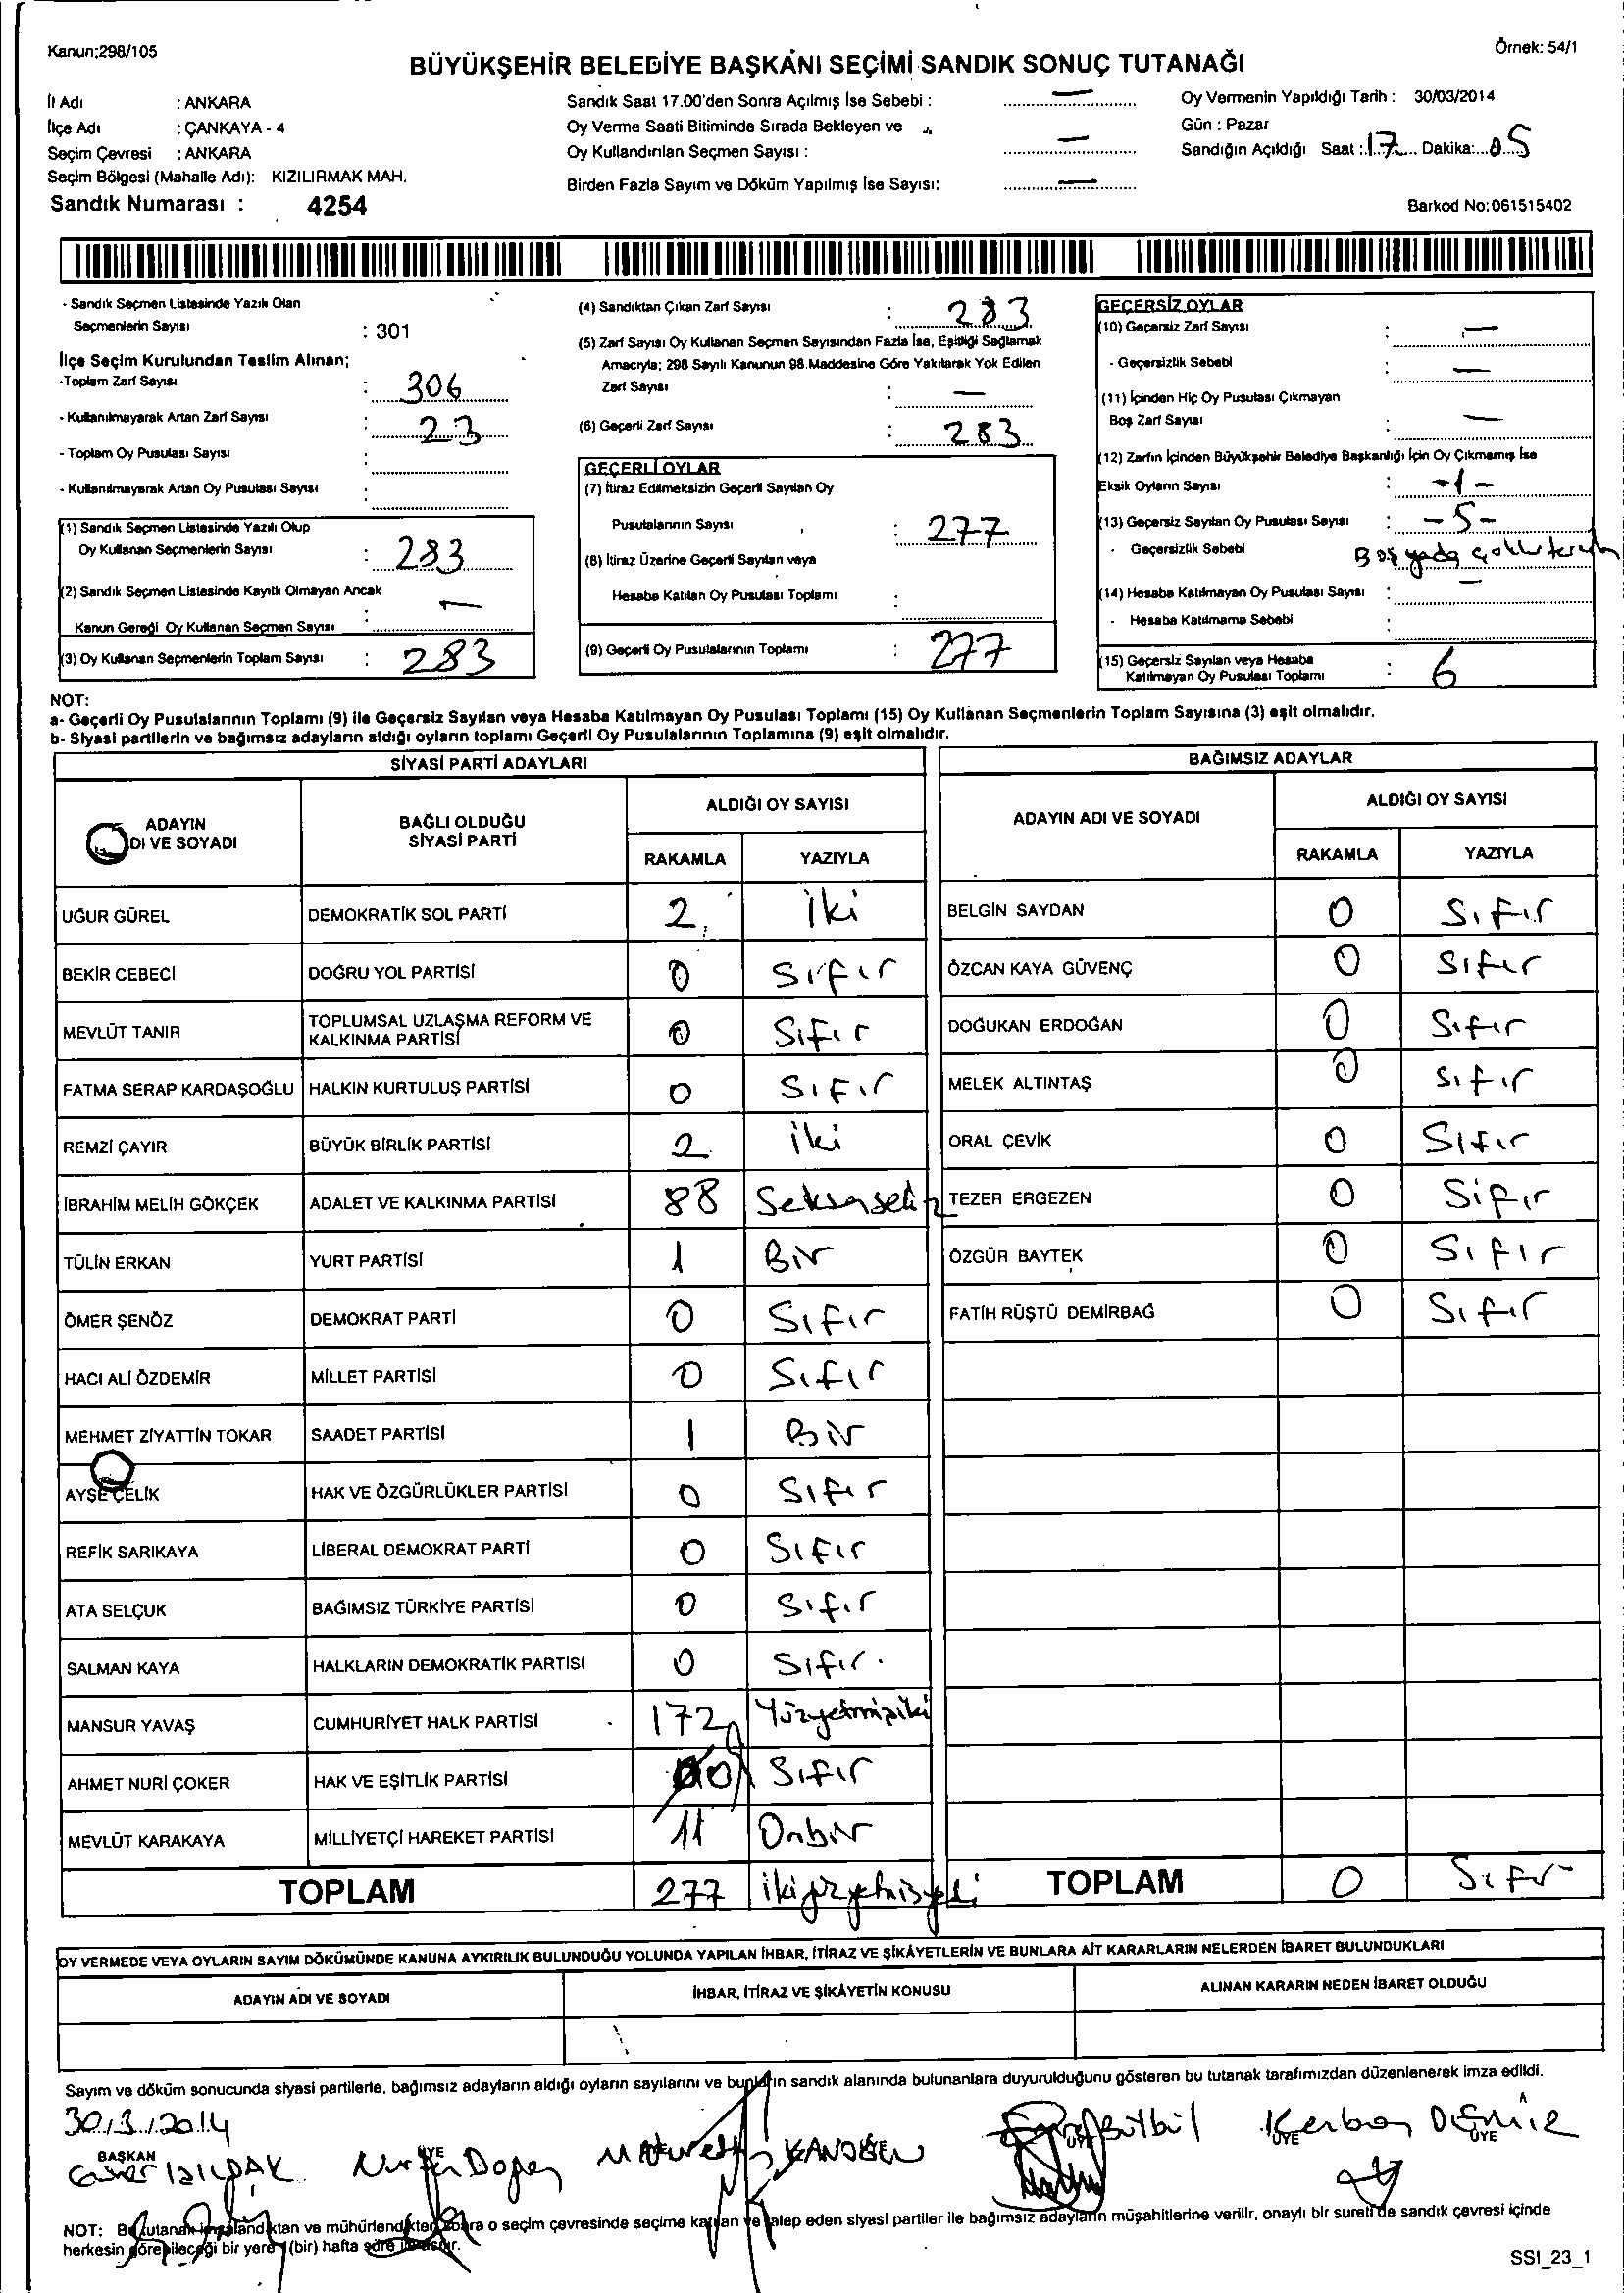 Kanun;298/105
Örnek: 54/1
BÜYÜKŞEHİR BELEDİYE BAŞKANI SEÇİMİ SANDIK SONUÇ TUTANAĞI
İl Adı : ANKARA
İlçe Adı : ÇANKAYA - 4
Seçim Çevresi : ANKARA
Seçim Bölgesi (Mahalle Adı): KIZILIRMAK MAH.
Sandık Numarası : 4254
Sandık Saat 17.00'den Sonra Açılmış İse Sebebi : —
Oy Verme Saati Bitiminde Sırada Bekleyen ve
Oy Kullandırılan Seçmen Sayısı : —
Birden Fazla Sayım ve Döküm Yapılmış İse Sayısı: —
Oy Vermenin Yapıldığı Tarih : 30/03/2014
Gün : Pazar
Sandığın Açıldığı Saat : 17 Dakika: 05
Barkod No:061515402
- Sandık Seçmen Listesinde Yazılı Olan
Seçmenlerin Sayısı : 301
İlçe Seçim Kurulundan Teslim Alınan;
-Toplam Zarf Sayısı : 306
- Kullanılmayarak Artan Zarf Sayısı : 23
- Toplam Oy Pusulası Sayısı :
- Kullanılmayarak Artan Oy Pusulası Sayısı :
(1) Sandık Seçmen Listesinde Yazılı Olup
Oy Kullanan Seçmenlerin Sayısı : 283
(2) Sandık Seçmen Listesinde Kayıtlı Olmayan Ancak
Kanun Gereği Oy Kullanan Seçmen Sayısı : —
(3) Oy Kullanan Seçmenlerin Toplam Sayısı : 283
(4) Sandıktan Çıkan Zarf Sayısı : 283
(5) Zarf Sayısı Oy Kullanan Seçmen Sayısından Fazla İse, Eşitliği Sağlamak
Amacıyla; 298 Sayılı Kanunun 98.Maddesine Göre Yakılarak Yok Edilen
Zarf Sayısı : —
(6) Geçerli Zarf Sayısı : 283
GEÇERLİ OYLAR
(7) İtiraz Edilmeksizin Geçerli Sayılan Oy
Pusulalarının Sayısı : 277
(8) İtiraz Üzerine Geçerli Sayılan veya
Hesaba Katılan Oy Pusulası Toplamı :
(9) Geçerli Oy Pusulalarının Toplamı : 277
GEÇERSİZ OYLAR
(10) Geçersiz Zarf Sayısı : —
- Geçersizlik Sebebi : —
(11) İçinden Hiç Oy Pusulası Çıkmayan
Boş Zarf Sayısı : —
(12) Zarfın İçinden Büyükşehir Belediye Başkanlığı İçin Oy Çıkmamış İse
Eksik Oyların Sayısı : -1-
(13) Geçersiz Sayılan Oy Pusulası Sayısı : -5-
- Geçersizlik Sebebi Boş yada çoklu tercih
(14) Hesaba Katılmayan Oy Pusulası Sayısı : —
- Hesaba Katılmama Sebebi :
(15) Geçersiz Sayılan veya Hesaba
Katılmayan Oy Pusulası Toplamı : 6
NOT:
a- Geçerli Oy Pusulalarının Toplamı (9) ile Geçersiz Sayılan veya Hesaba Katılmayan Oy Pusulası Toplamı (15) Oy Kullanan Seçmenlerin Toplam Sayısına (3) eşit olmalıdır.
b- Siyasi partilerin ve bağımsız adayların aldığı oyların toplamı Geçerli Oy Pusulalarının Toplamına (9) eşit olmalıdır.
SİYASİ PARTİ ADAYLARI
ADAYIN
DI VE SOYADI
BAĞLI OLDUĞU
SİYASİ PARTİ
ALDIĞI OY SAYISI
RAKAMLA YAZIYLA
UĞUR GÜREL DEMOKRATİK SOL PARTİ 2 İki
BEKİR CEBECİ DOĞRU YOL PARTİSİ 0 Sıfır
MEVLÜT TANIR TOPLUMSAL UZLAŞMA REFORM VE
KALKINMA PARTİSİ 0 Sıfır
FATMA SERAP KARDAŞOĞLU HALKIN KURTULUŞ PARTİSİ 0 Sıfır
REMZİ ÇAYIR BÜYÜK BİRLİK PARTİSİ 2 iki
İBRAHİM MELİH GÖKÇEK ADALET VE KALKINMA PARTİSİ 88 Seksensekiz
TÜLİN ERKAN YURT PARTİSİ 1 Bir
ÖMER ŞENÖZ DEMOKRAT PARTİ 0 Sıfır
HACI ALİ ÖZDEMİR MİLLET PARTİSİ 0 Sıfır
MEHMET ZİYATTİN TOKAR SAADET PARTİSİ 1 Bir
AYŞE ÇELİK HAK VE ÖZGÜRLÜKLER PARTİSİ 0 Sıfır
REFİK SARIKAYA LİBERAL DEMOKRAT PARTİ 0 Sıfır
ATA SELÇUK BAĞIMSIZ TÜRKİYE PARTİSİ 0 Sıfır
SALMAN KAYA HALKLARIN DEMOKRATİK PARTİSİ 0 Sıfır.
MANSUR YAVAŞ CUMHURİYET HALK PARTİSİ 172 Yüzyetmişiki
AHMET NURİ ÇOKER HAK VE EŞİTLİK PARTİSİ 0 Sıfır
MEVLÜT KARAKAYA MİLLİYETÇİ HAREKET PARTİSİ 11 Onbir
TOPLAM 277 ikiyüzyetmişyedi
BAĞIMSIZ ADAYLAR
ADAYIN ADI VE SOYADI
ALDIĞI OY SAYISI
RAKAMLA YAZIYLA
BELGİN SAYDAN 0 Sıfır
ÖZCAN KAYA GÜVENÇ 0 Sıfır
DOĞUKAN ERDOĞAN 0 Sıfır
MELEK ALTINTAŞ 0 Sıfır
ORAL ÇEVİK 0 Sıfır
TEZER ERGEZEN 0 Sıfır
ÖZGÜR BAYTEK 0 Sıfır
FATİH RÜŞTÜ DEMİRBAĞ 0 Sıfır
TOPLAM 0 Sıfır
OY VERMEDE VEYA OYLARIN SAYIM DÖKÜMÜNDE KANUNA AYKIRILIK BULUNDUĞU YOLUNDA YAPILAN İHBAR, İTİRAZ VE ŞİKÂYETLERİN VE BUNLARA AİT KARARLARIN NELERDEN İBARET BULUNDUKLARI
ADAYIN ADI VE SOYADI
İHBAR, İTİRAZ VE ŞİKÂYETİN KONUSU
ALINAN KARARIN NEDEN İBARET OLDUĞU
Sayım ve döküm sonucunda siyasi partilerle, bağımsız adayların aldığı oyların sayılarını ve bunların sandık alanında bulunanlara duyurulduğunu gösteren bu tutanak tarafımızdan düzenlenerek imza edildi.
30/3/2014
BAŞKAN ÜYE ÜYE ÜYE ÜYE
NOT: Bu tutanak imzalandıktan ve mühürlendikten sonra o seçim çevresinde seçime katılan ve talep eden siyasi partiler ile bağımsız adayların müşahitlerine verilir, onaylı bir sureti de sandık çevresi içinde
herkesin görebileceği bir yere 1(bir) hafta süre
SSI_23_1